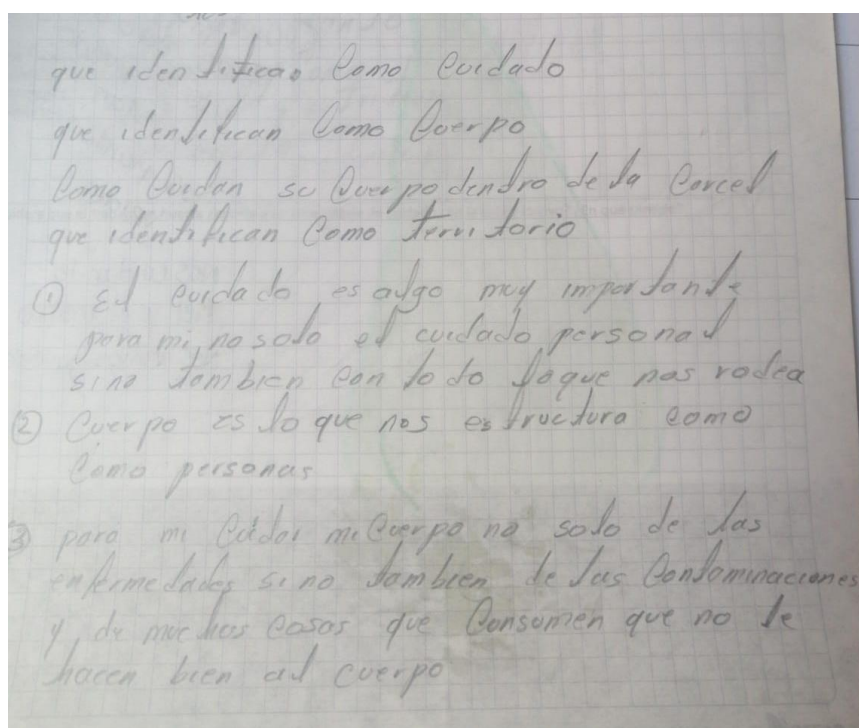 que identifican Como Cuidado
que identifican Como Cuerpo
Como Cuidan su Cuerpo dentro de la Carcel
que identifican Como territorio
① El cuidado es algo muy importante
para mi, no solo el cuidado personal
sino tambien con todo lo que nos rodea
② Cuerpo es lo que nos estructura como
Como personas
③ para mi Cuidar mi Cuerpo no solo de las
enfermedades sino tambien de las Contaminaciones
y de muchas cosas que Consumen que no le
hacen bien al cuerpo